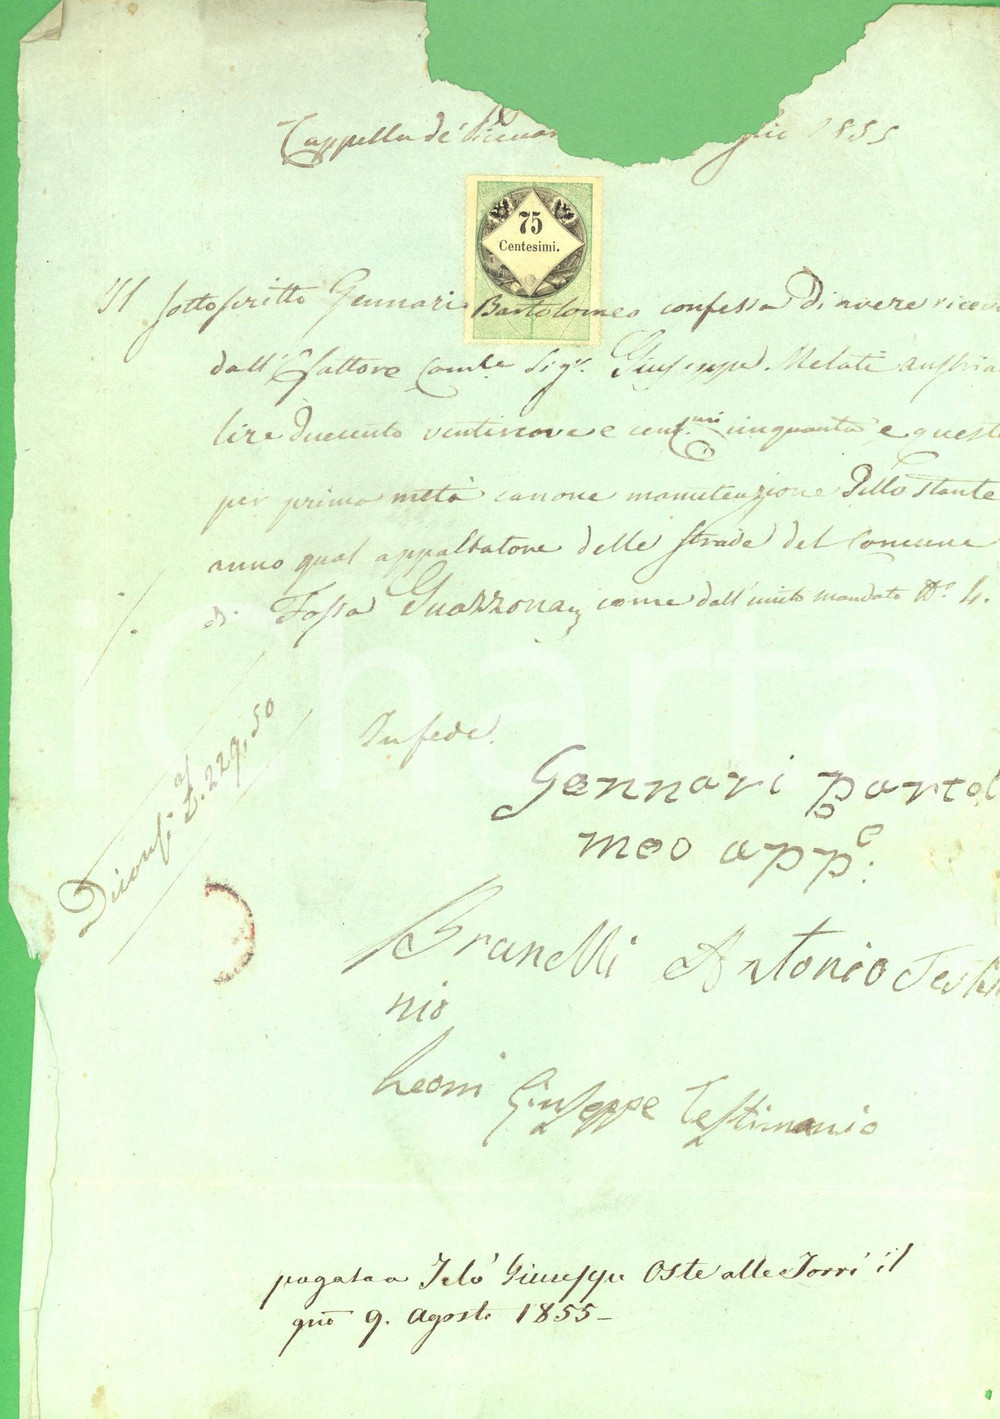 Cappella de' Picenar glio 1855
75
Centesimi.
Il sottoscritto Gennari Bartolomeo confessa di avere ricev
dall' Esattore Comle Sigr. Giuseppe Melati austria
lire duecento ventinove e centmi cinquanta e questo
per prima metà canone manutenzione dello stante
anno qual appaltatore delle strade del Comune
di Fossa Guazzona, come dall' unito mandato No. 4.
Diconsi al L. 229,50
In fede.
Gennari Bartol
meo appe:
Branelli Antonio Testim
nio
Leoni Giuseppe Testimonio
pagata a Telò Giuseppe Oste alle Torri il
gno 9. Agosto 1855-
iCharta